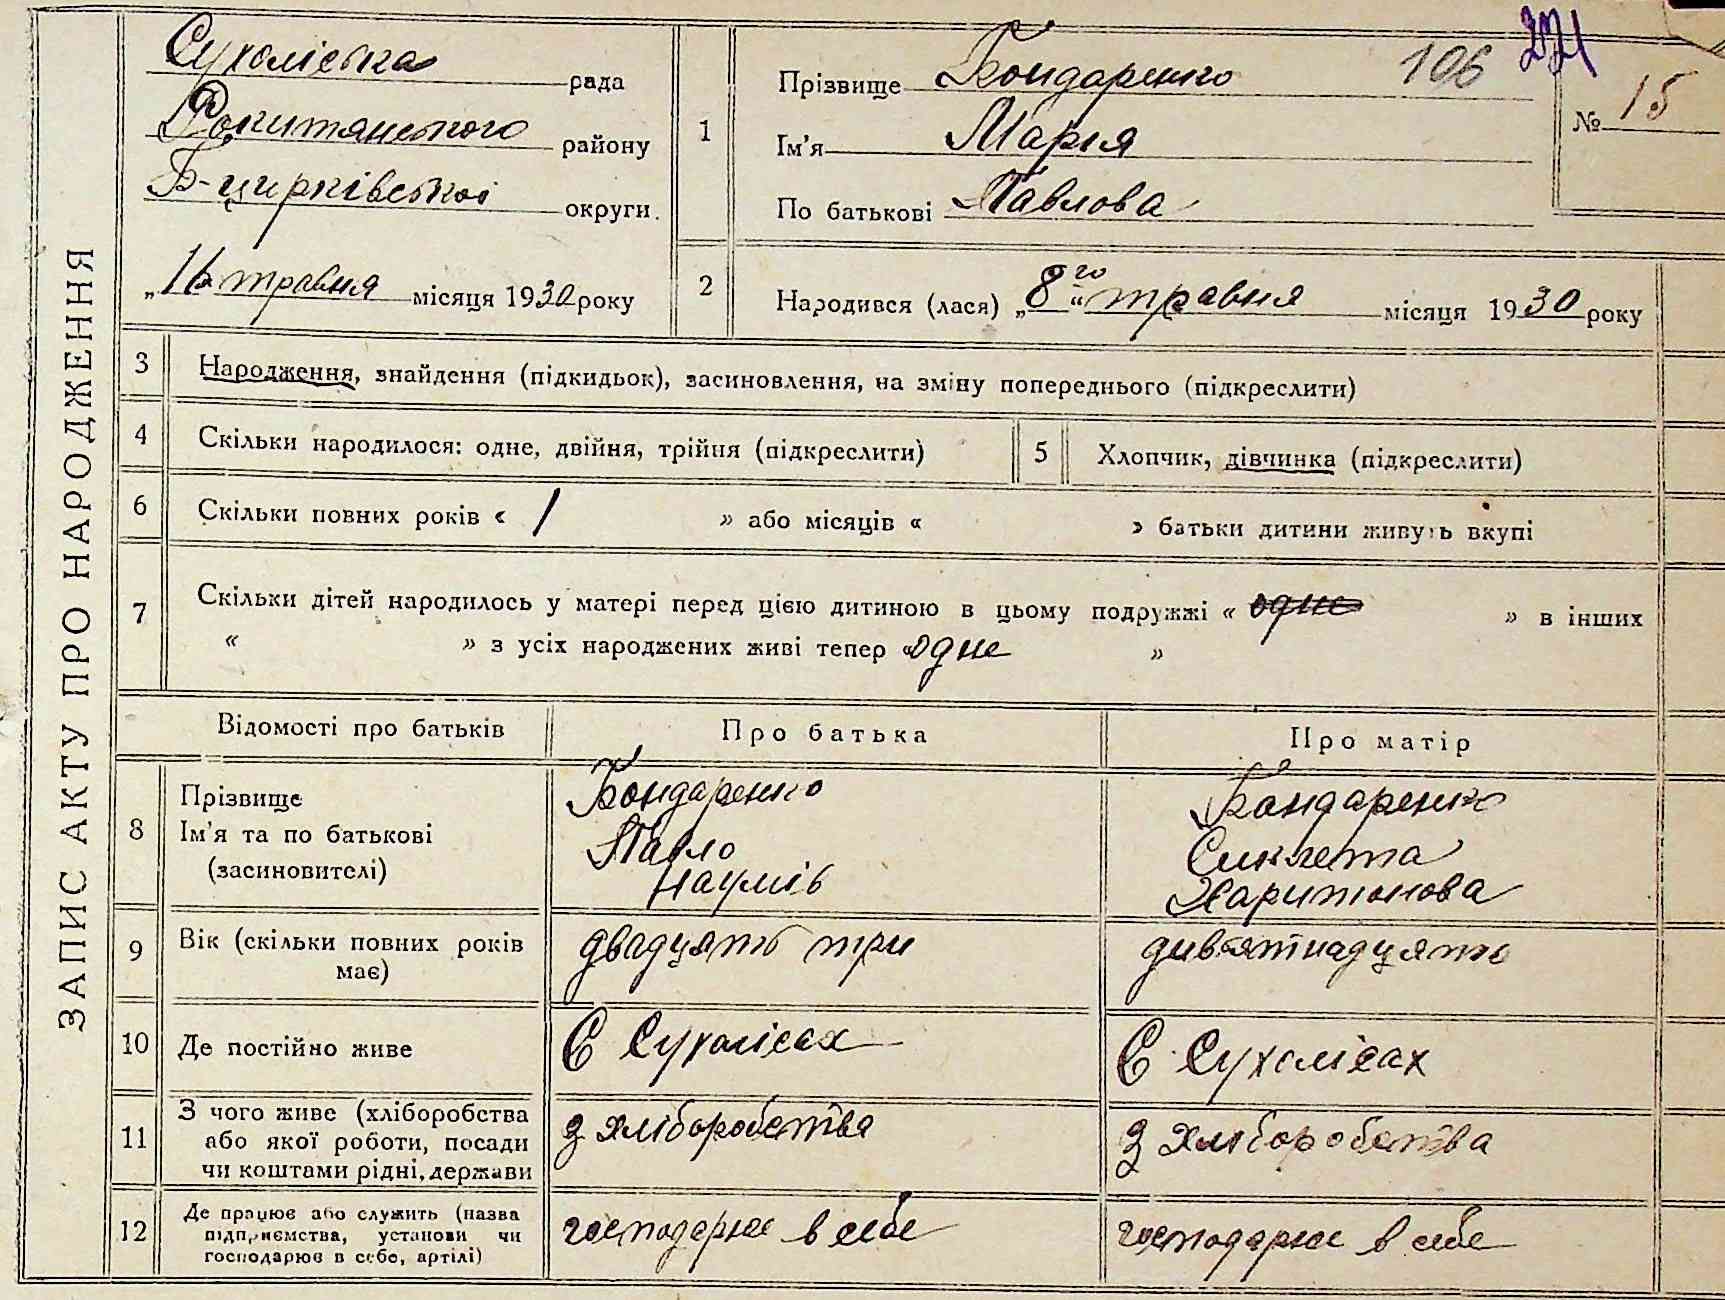 ЗАПИС АКТУ ПРО НАРОДЖЕННЯ
Сухоліська рада
Рокитянського району
Б-цирківської округи.
„16 травня місяця 1930 року
106 221
№ 15
1 Прізвище Бондаренко
Ім'я Марія
По батькові Павлова
2 Народився (лася) „8го“ травня місяця 1930 року
3 Народження, знайдення (підкидьок), засиновлення, на зміну попереднього (підкреслити)
4 Скільки народилося: одне, двійня, трійня (підкреслити) 5 Хлопчик, дівчинка (підкреслити)
6 Скільки повних років « 1 » або місяців « » батьки дитини живуть вкупі
7 Скільки дітей народилось у матері перед цією дитиною в цьому подружжі « одне » в інших
« » з усіх народжених живі тепер «одне »
Відомості про батьків Про батька Про матір
8 Прізвище Бондаренко Бондаренко
Ім'я та по батькові Павло Сиклета
(засиновителі) Наумів Харитонова
9 Вік (скільки повних років має) двадцять три дивятнадцять
10 Де постійно живе С Сухолісах С Сухолісах
11 З чого живе (хліборобства
або якої роботи, посади з хліборобства з хліборобства
чи коштами рідні, держави
12 Де працює або служить (назва
підприємства, установи чи господарює в себе господарює в себе
господарює в себе, артілі)